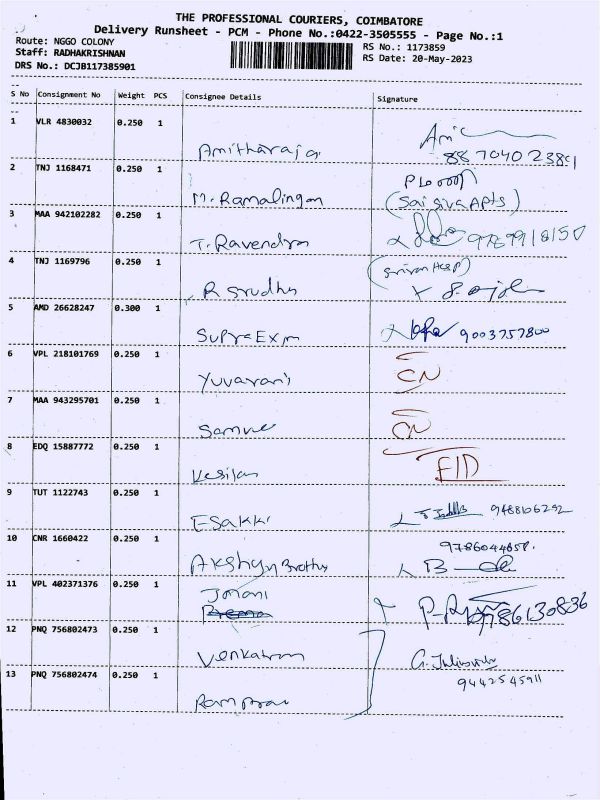 THE PROFESSIONAL COURIERS, COIMBATORE
Delivery Runsheet - PCM - Phone No.:0422-3505555 - Page No.:1
Route: NGGO COLONY
RS No.: 1173859
Staff: RADHAKRISHNAN
RS Date: 20-May-2023
DRS No.: DCJB117385901
S No Consignment No Weight PCS Consignee Details Signature
1 VLR 4830032 0.250 1
Amitharaja
8870402389
2 TNJ 1168471 0.250 1
M. Ramalingam (Sai Siva Apts)
3 MAA 942102282 0.250 1
T. Ravendra 9789918150
4 TNJ 1169796 0.250 1
R Srudhu
5 AMD 26628247 0.300 1
Supra Exm 9003757800
6 VPL 218101769 0.250 1
Yuvarani CN
7 MAA 943295701 0.250 1
Samuel CN
8 EDQ 15887772 0.250 1
Kesilan FID
9 TUT 1122743 0.250 1
Esakki 9488106292
10 CNR 1660422 0.250 1
9786044658.
Akshya Brothes B
11 VPL 402371376 0.250 1
Janani
9786130836
12 PNQ 756802473 0.250 1
Venkatram
13 PNQ 756802474 0.250 1
9442545911
Ramprasa